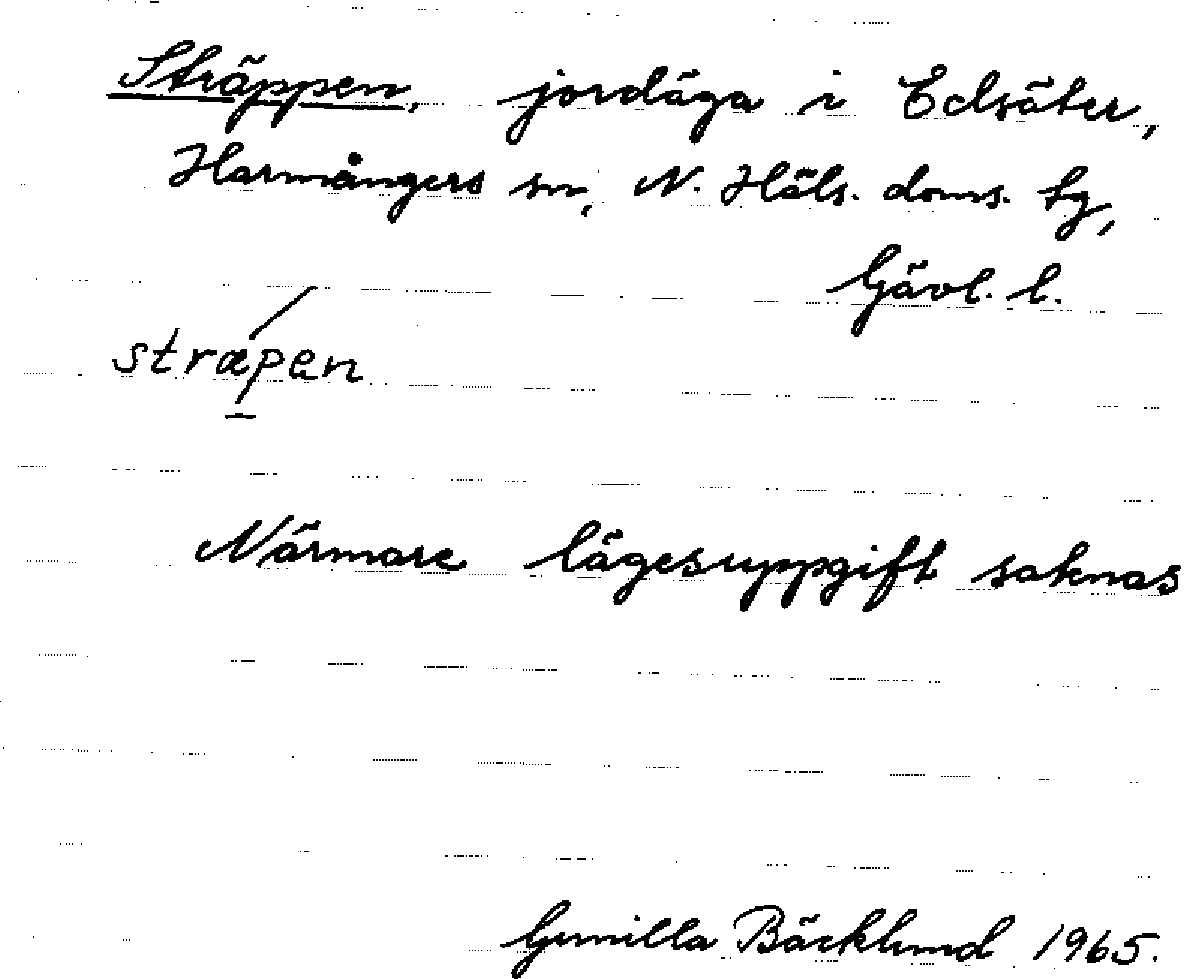 Sträppen, jordäga i Edsäter,
Harmångers sn, N. Häls. doms. tg,
Gävl. l.
stræpen
Närmare lägesuppgift saknas
Gunilla Bäcklund 1965.